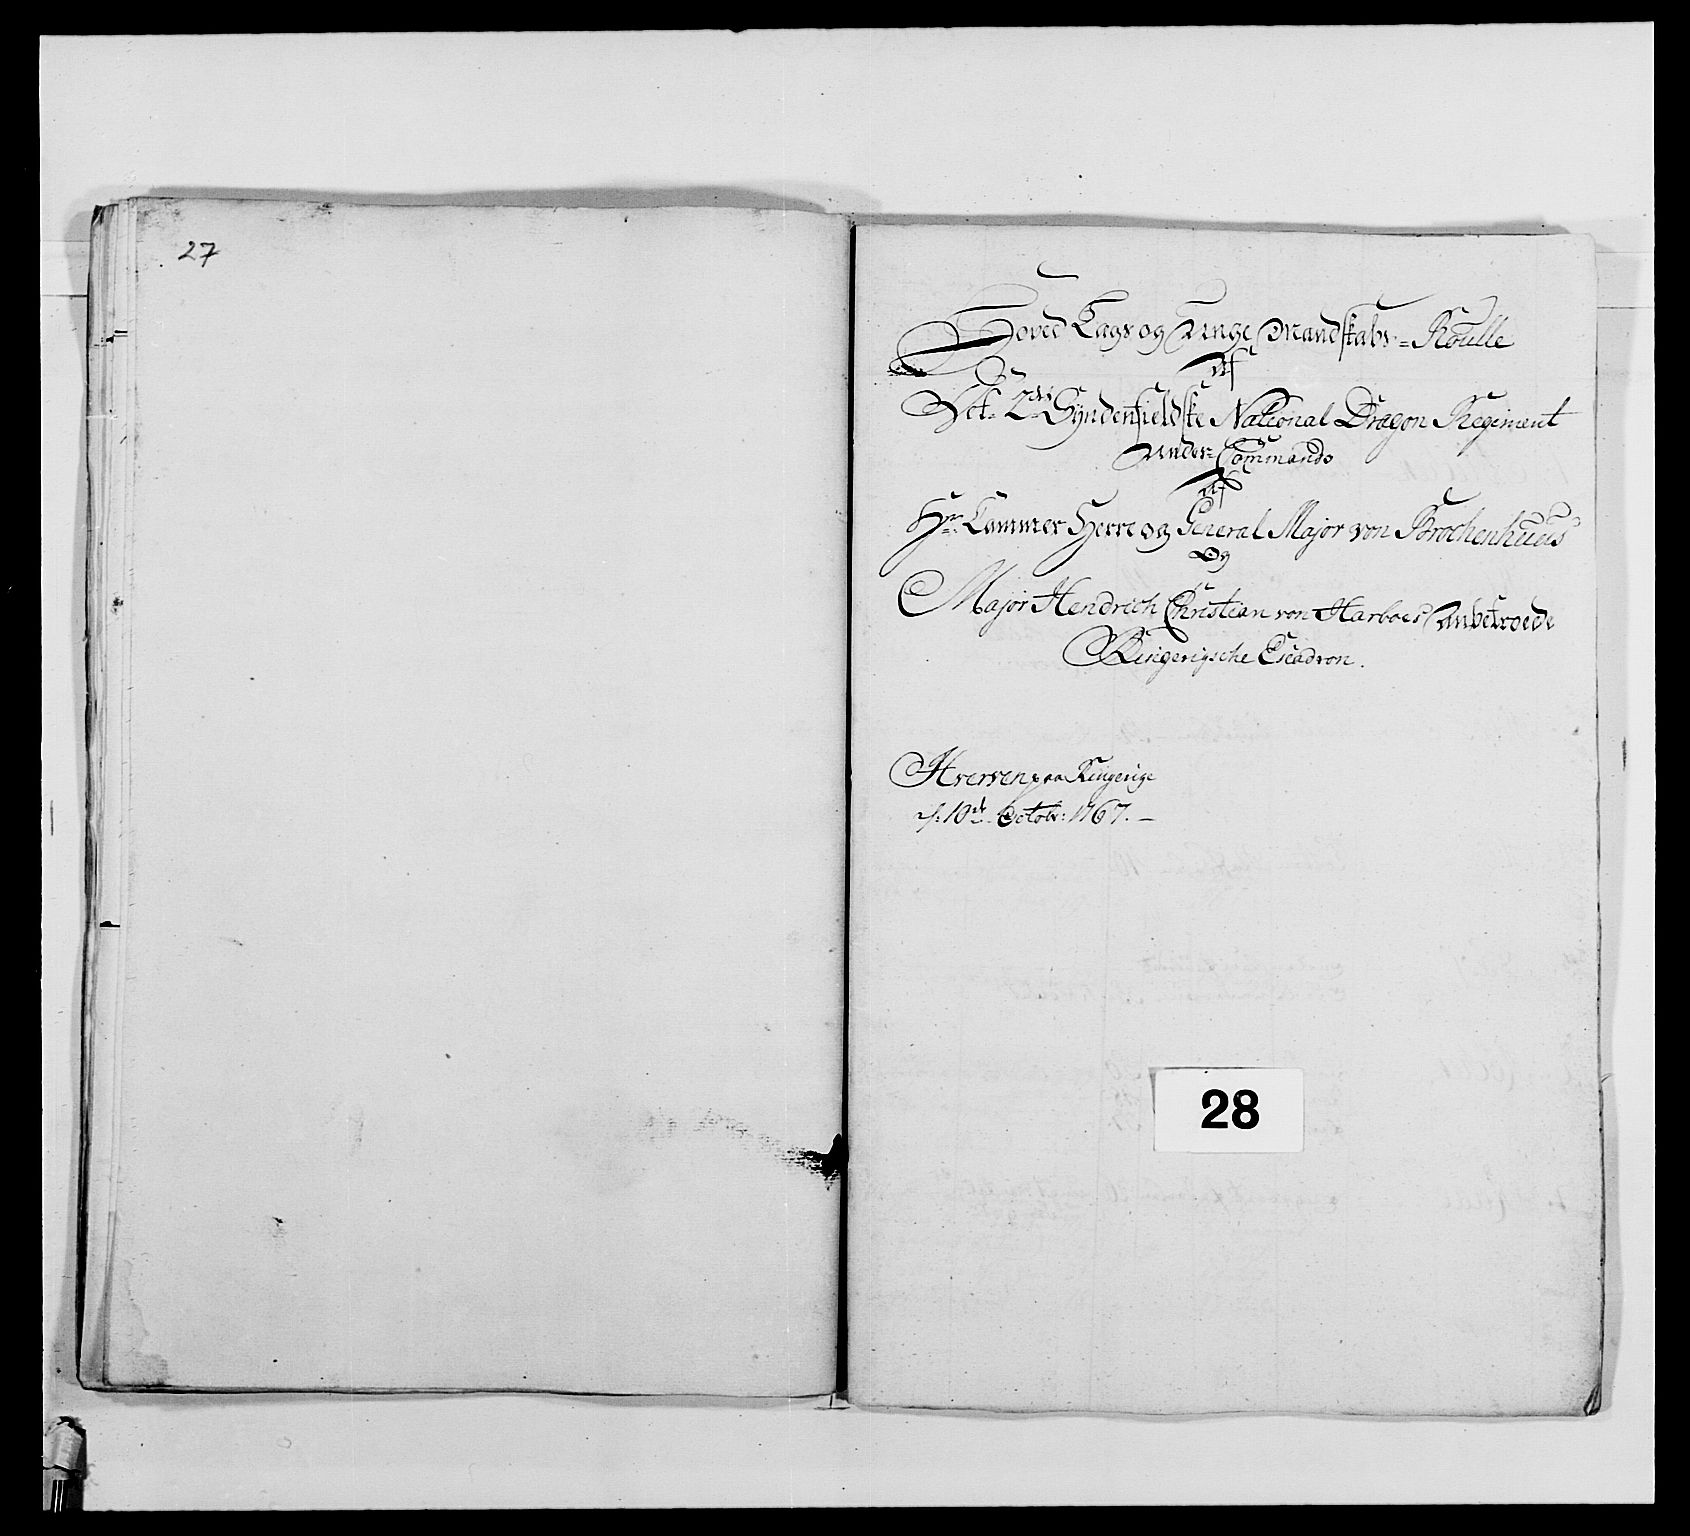 27
Hoved Lags og Unge Mandskabs = Roulle
Af
Det 2det Syndenfieldske National Dragon Regiment
under Commando
Af
Hr: Cammer Herre og General Major von Brochenhuus
Og
Major Hendrich Christian von Harboes anbetroede
Ringerigsche Escadron.
Hverven paa Ringerige
d: 10de Octobr: 1767. –
28